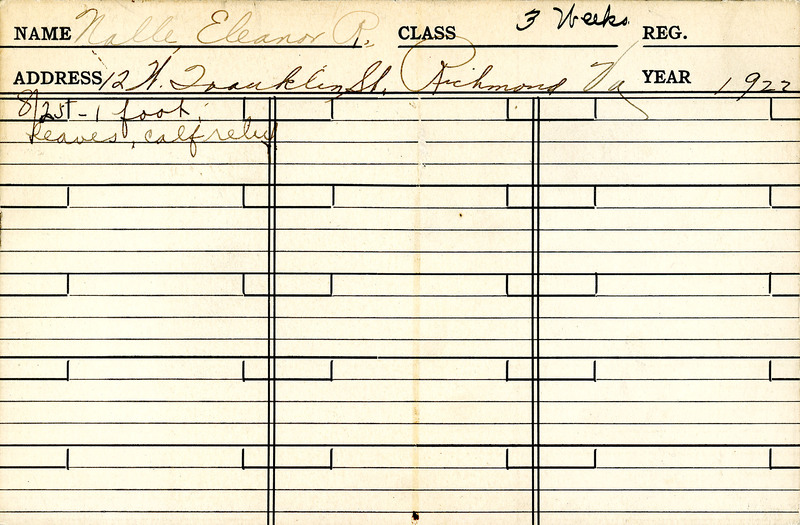 NAME Nalle, Eleanor R. CLASS 3 Weeks REG.
ADDRESS 12 W. Franklin St. Richmond Va YEAR 1922
8/25 - 1 foot,
leaves, calf